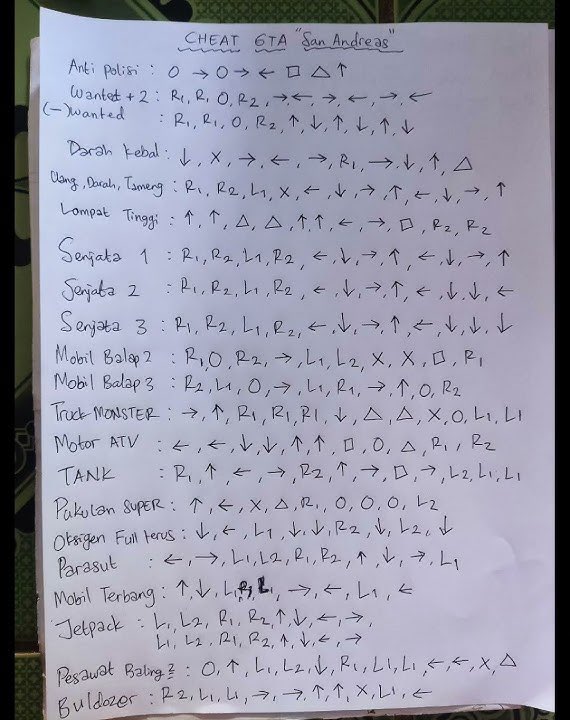 CHEAT GTA "San Andreas"
Anti polisi : O → O → ← □ △ ↑
Wantet + 2 : R1, R1, O, R2, →, ←, →, ←, →, ←
(-) Wanted : R1, R1, O, R2, ↑, ↓, ↑, ↓, ↑, ↓
Darah Kebal : ↓, X, →, ←, →, R1, →, ↓, ↑, △
Uang, Darah, Tameng : R1, R2, L1, X, ←, ↓, →, ↑, ←, ↓, →, ↑
Lompat Tinggi : ↑, ↑, △, △, ↑, ↑, ←, →, □, R2, R2
Senjata 1 : R1, R2, L1, R2, ←, ↓, →, ↑, ←, ↓, →, ↑
Senjata 2 : R1, R2, L1, R2, ←, ↓, →, ↑, ←, ↓, ↓, ←
Senjata 3 : R1, R2, L1, R2, ←, ↓, →, ↑, ←, ↓, ↓, ↓
Mobil Balap 2 : R1, O, R2, →, L1, L2, X, X, □, R1
Mobil Balap 3 : R2, L1, O, →, L1, R1, →, ↑, O, R2
Truck MONSTER : →, ↑, R1, R1, R1, ↓, △, △, X, O, L1, L1
Motor ATV : ←, ←, ↓, ↓, ↑, ↑, □, O, △, R1, R2
TANK : R1, ↑, ←, →, R2, ↑, →, □, →, L2, L1, L1
Pukulan SUPER : ↑, ←, X, △, R1, O, O, O, L2
Oksigen Full terus : ↓, ←, L1, ↓, ↓, R2, ↓, L2, ↓
Parasut : ←, →, L1, L2, R1, R2, ↑, ↓, →, L1
Mobil Terbang : ↑, ↓, L1, R1, L1, →, ←, L1, ←
Jetpack : L1, L2, R1, R2, ↑, ↓, ←, →,
L1, L2, R1, R2, ↑, ↓, ←, →
Pesawat Baling2 : O, ↑, L1, L2, ↓, R1, L1, L1, ←, ←, X, △
Buldozer : R2, L1, L1, →, →, ↑, ↑, X, L1, ←